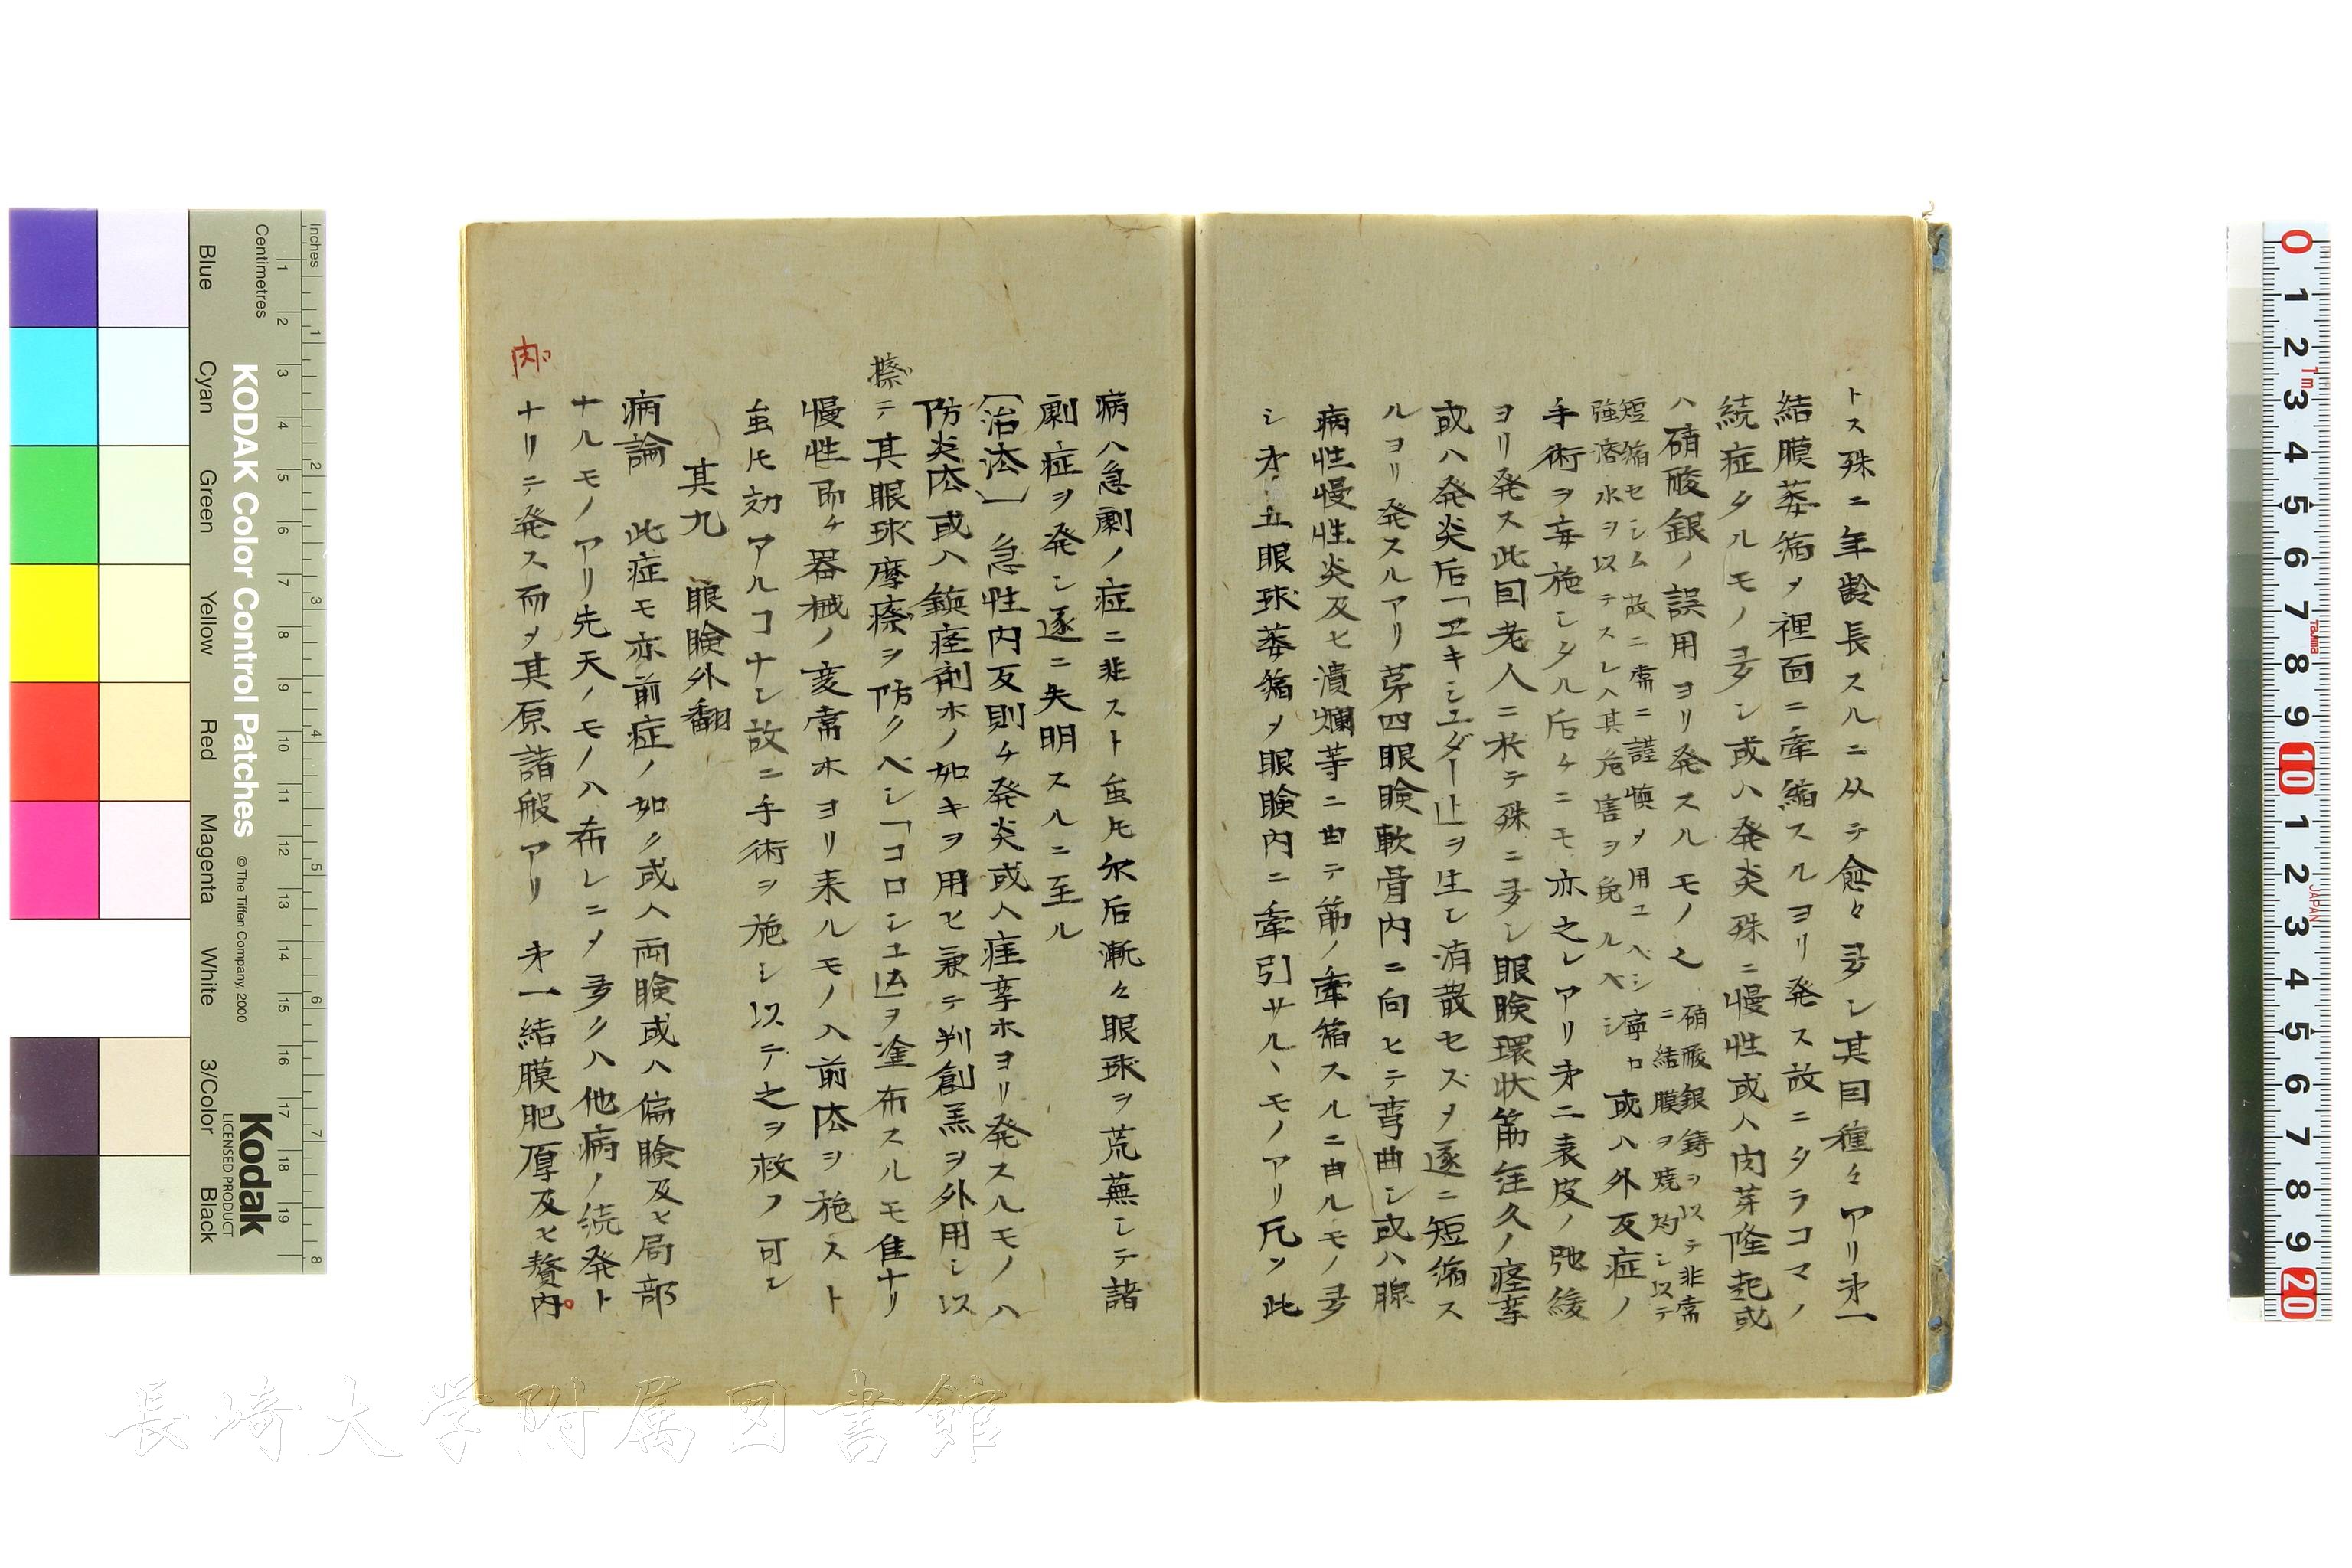 トス殊ニ年齢長スルニ从テ愈々多シ其目種々アリ第一
結膜萎縮〆裡面ニ牽縮スルヨリ発ス故ニタラコマノ
続症タルモノ多シ或ハ発炎殊ニ慢性或ハ肉芽隆起或
ハ硝酸銀ノ誤用ヨリ発スルモノ之
硝酸銀鋳ヲ以テ非常
ニ結膜ヲ焼灼シ以テ
短縮セシム故ニ常ニ謹慎〆用ユヘシ寧ロ
強溶水ヲ以テスレハ其危害ヲ免ルヘシ
或ハ外反症ノ
手術ヲ妄施シタル后チニモ亦之レアリ第二表皮ノ弛緩
ヨリ発ス此目老人ニ於テ殊ニ多シ眼瞼環状筋年久ノ痙挛
或ハ発炎后「ヱキシユダー」止ヲ生シ消散セズ〆遂ニ短縮ス
ルヨリ発スルアリ第四眼瞼軟骨内ニ向ヒテ弯曲シ或ハ腺
病性慢性炎及ヒ潰爛等ニ由テ筋ノ牽縮スルニ由ルモノ多
シ第五眼球萎縮〆眼瞼内ニ牽引サルヽモノアリ凡ソ此
病ハ急劇ノ症ニ非スト虽𪜈尓后漸々眼球ヲ荒蕪シテ諸
劇症ヲ発シ遂ニ失明スルニ至ル
〔治法〕 急性内反則チ発炎或ハ痙挛ホヨリ発スルモノハ
防炎法或ハ鎮痙剤ホノ如キヲ用ヒ兼テ判創羔ヲ外用シ以
テ其眼球摩擦ヲ防クヘシ「コロシユ」法ヲ塗布スルモ佳ナリ
擦
慢性即チ器械ノ変常ホヨリ来ルモノハ前法ヲ施スト
虽𪜈効アルコナシ故ニ手術ヲ施シ以テ之ヲ救フ可シ
其九 眼瞼外翻
病論 此症モ亦前症ノ如ク或ハ両瞼或ハ偏瞼及ヒ局部
ナルモノアリ先天ノモノハ希レニ〆多クハ他病ノ続発ト
ナリテ発ス而〆其原諸般アリ 第一結膜肥厚及ヒ贅内
肉
Inches
Centimetres
KODAK Color Control Patches
© The Tiffen Company, 2000
Kodak
LICENSED PRODUCT
Blue Cyan Green Yellow Red Magenta White 3/Color Black
1 2 3 4 5 6 7 8
1 2 3 4 5 6 7 8 9 10 11 12 13 14 15 16 17 18 19
0 1 2 3 4 5 6 7 8 9 10 1 2 3 4 5 6 7 8 9 20
1m
Tajima
JAPAN
長崎大学附属図書館